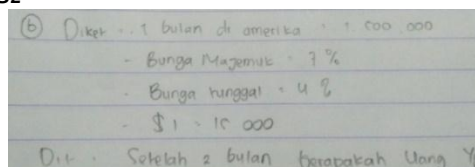 (b) Diket : 1 bulan di amerika : 1 500 000
- Bunga Majemuk : 7 %
- Bunga tunggal : 4 %
- $ 1 = 15 000
Dit : Setelah 2 bulan berapakah Uang